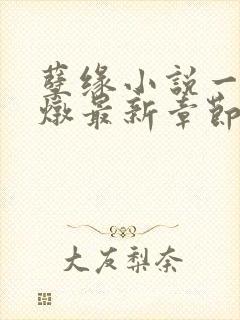 孽缘小说一
燉最新章节
大友梨奈